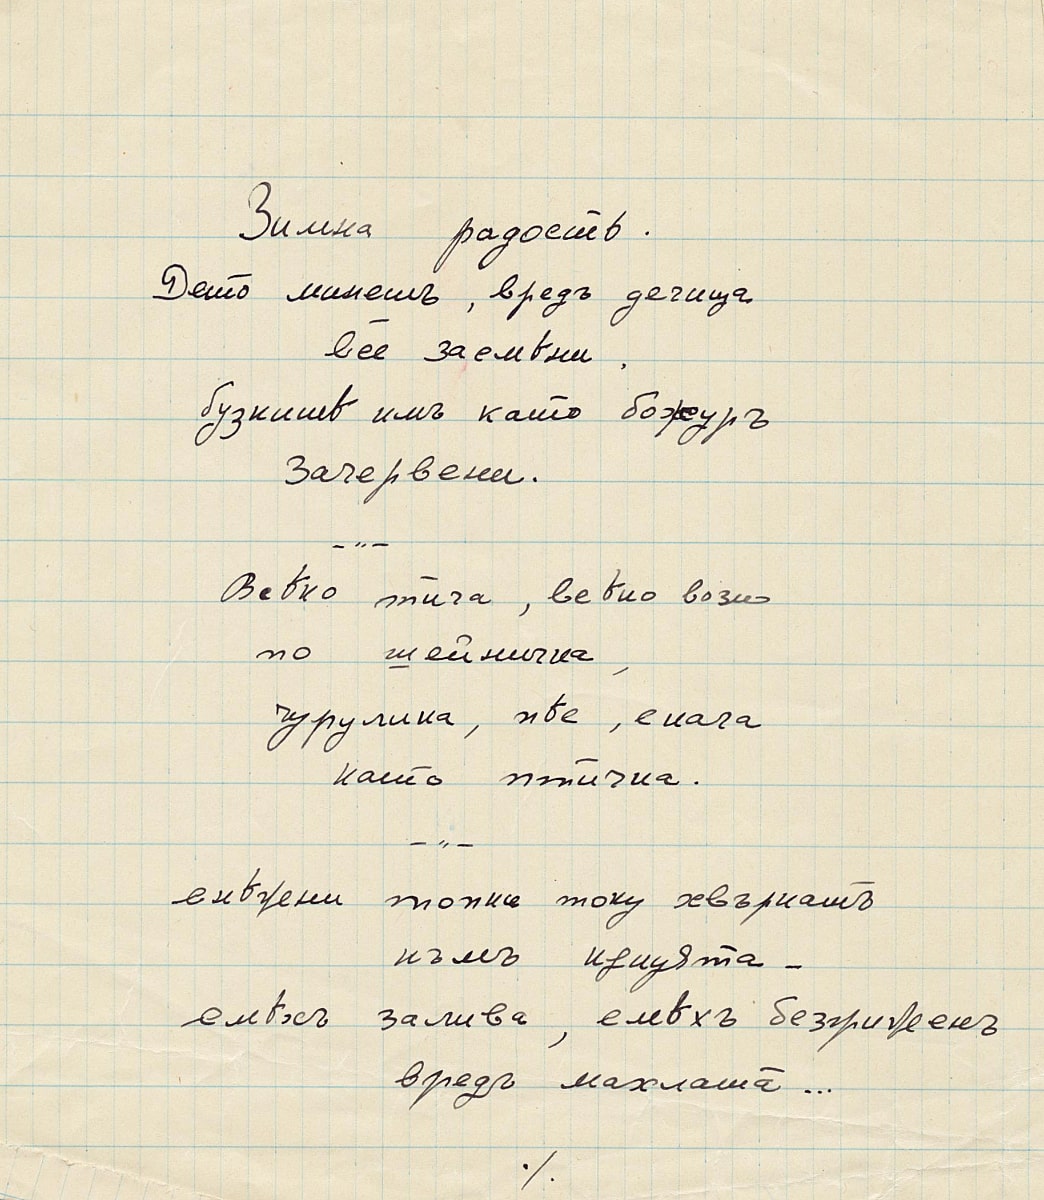 Зимна радость.
Дето минешъ, вредъ дечица
все засмѣни,
бузкитѣ имъ като божуръ
зачервени.
–„–
Всѣко тича, всѣко вози
по шейничка,
чурулика, пѣе, скача
като птичка.
–„–
снѣжни топки току хвъркатъ
къмъ
смѣхъ залива, смѣхъ безгриженъ
вредъ махлата...
./.